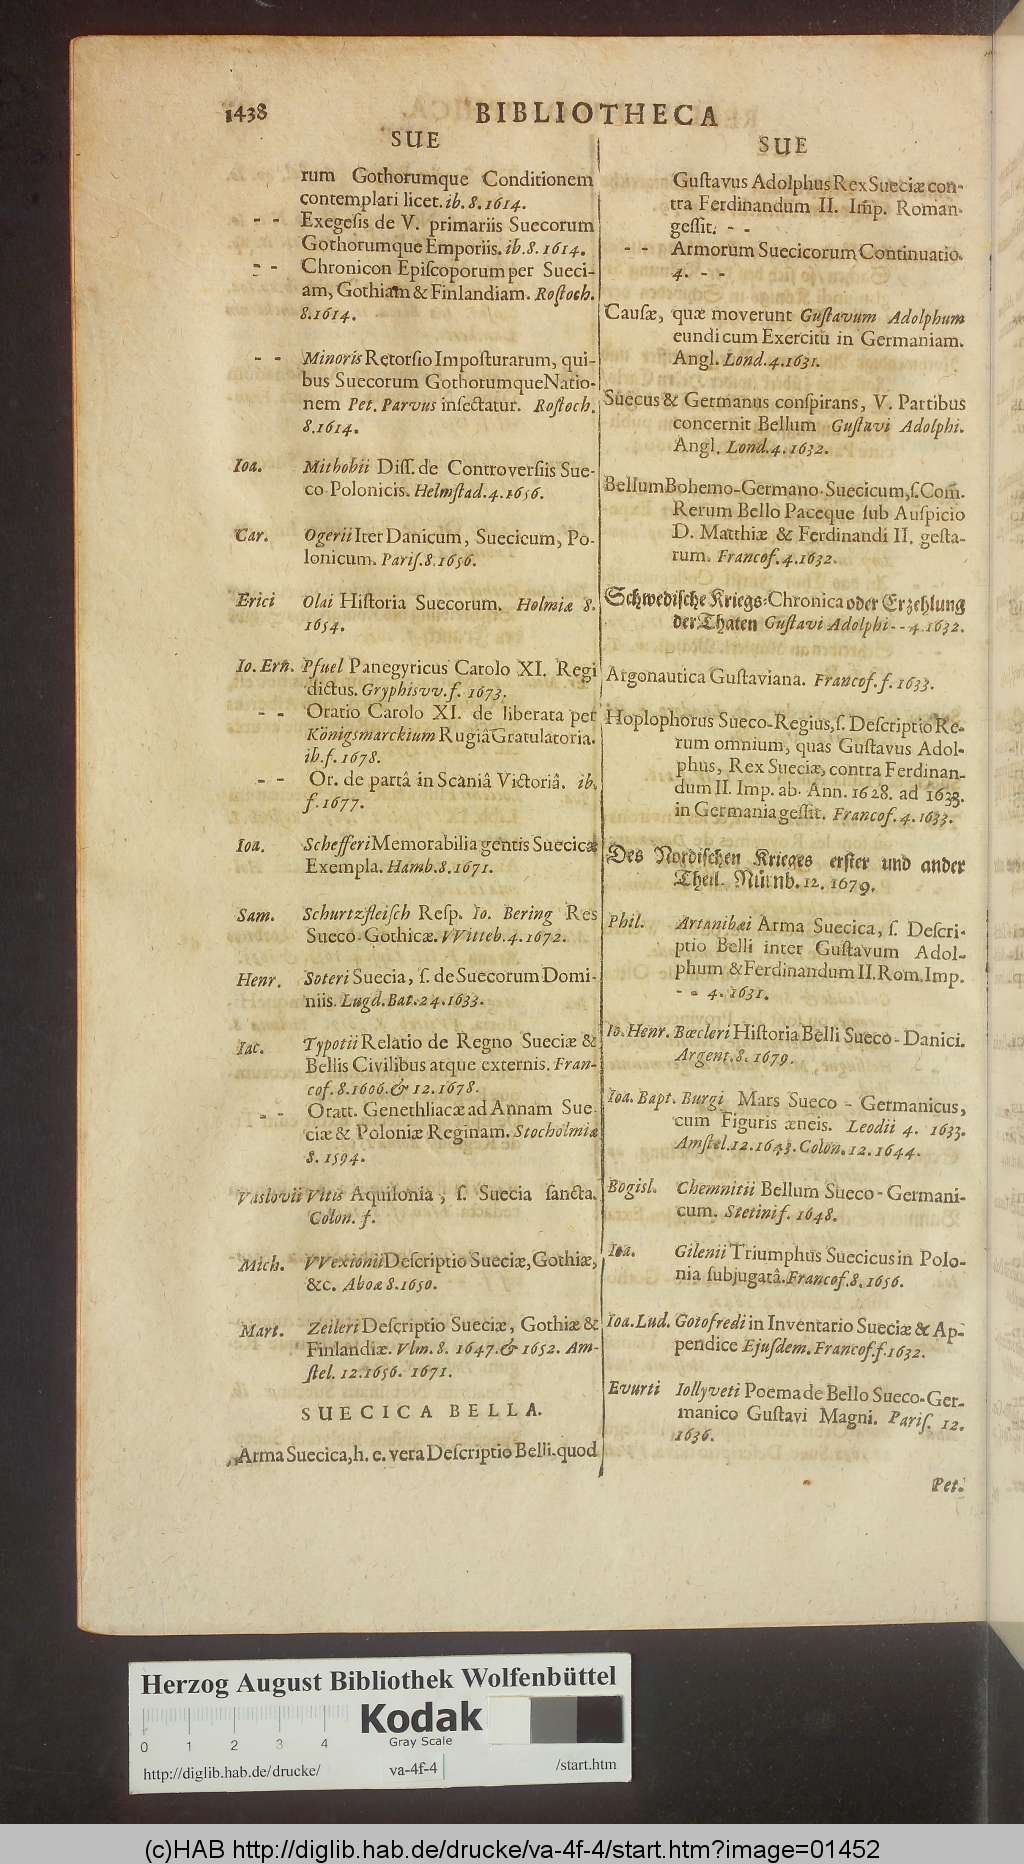 1438
BIBLIOTHECA
SUE
rum Gothorumque Conditionem
contemplari licet. ib. 8. 1614.
- - Exegeſis de V. primariis Suecorum
Gothorumque Emporiis. ib. 8. 1614.
- - Chronicon Epiſcoporum per Sueci-
am, Gothiam & Finlandiam. Roſtoch.
8. 1614.
- - Minoris Retorſio Impoſturarum, qui-
bus Suecorum Gothorumque Natio-
nem Pet. Parvus inſectatur. Roſtoch.
8. 1614.
Ioa. Mithobii Diſſ. de Controverſiis Sue-
co-Polonicis. Helmſtad. 4. 1656.
Car. Ogerii Iter Danicum, Suecicum, Po-
lonicum. Pariſ. 8. 1656.
Erici Olai Hiſtoria Suecorum. Holmiæ 8.
1654.
Io. Ern. Pfuel Panegyricus Carolo XI. Regi
dictus. Gryphisvv. f. 1673.
- - Oratio Carolo XI. de liberata per
Königsmarckium Rugiâ Gratulatoria.
ib. f. 1678.
- - Or. de partâ in Scaniâ Victoriâ. ib.
f. 1677.
Ioa. Schefferi Memorabilia gentis Suecicæ
Exempla. Hamb. 8. 1671.
Sam. Schurtzfleiſch Reſp. Io. Bering Res
Sueco-Gothicæ. VVitteb. 4. 1672.
Henr. Soteri Suecia, ſ. de Suecorum Domi-
niis. Lugd. Bat. 24. 1633.
Iac. Typotii Relatio de Regno Sueciæ &
Bellis Civilibus atque externis. Fran-
cof. 8. 1606. & 12. 1678.
- - Oratt. Genethliacæ ad Annam Sue-
ciæ & Poloniæ Reginam. Stocholmiæ
8. 1594.
Vaslovii Vitis Aquilonia, ſ. Suecia ſancta.
Colon. f.
Mich. VVexionii Deſcriptio Sueciæ, Gothiæ,
&c. Aboæ 8. 1650.
Mart. Zeileri Deſcriptio Sueciæ, Gothiæ &
Finlandiæ. Vlm. 8. 1647. & 1652. Am-
ſtel. 12. 1656. 1671.
SUECICA BELLA.
Arma Suecica, h. e. vera Deſcriptio Belli. quod
SUE
Guſtavus Adolphus Rex Sueciæ con-
tra Ferdinandum II. Imp. Roman.
geſſit. - -
- - Armorum Suecicorum Continuatio.
4. - -
Cauſæ, quæ moverunt Guſtavum Adolphum
eundi cum Exercitu in Germaniam.
Angl. Lond. 4. 1631.
Suecus & Germanus conſpirans, V. Partibus
concernit Bellum Guſtavi Adolphi.
Angl. Lond. 4. 1632.
Bellum Bohemo-Germano-Suecicum, ſ. Com̃.
Rerum Bello Paceque ſub Auſpicio
D. Matthiæ & Ferdinandi II. geſta-
rum. Francof. 4. 1632.
Schwediſche Kriegs-Chronica oder Erzehlung
der Thaten Guſtavi Adolphi - - 4. 1632.
Argonautica Guſtaviana. Francof. f. 1633.
Hoplophorus Sueco-Regius, ſ. Deſcriptio Re-
rum omnium, quas Guſtavus Adol-
phus, Rex Sueciæ, contra Ferdinan-
dum II. Imp. ab. Ann. 1628. ad 1633.
in Germania geſſit. Francof. 4. 1633.
Des Nordiſchen Krieges erſter und ander
Theil. Nürnb. 12. 1679.
Phil. Artanibæi Arma Suecica, ſ. Deſcri-
ptio Belli inter Guſtavum Adol-
phum & Ferdinandum II. Rom. Imp.
- - 4. 1631.
Io. Henr. Bœcleri Hiſtoria Belli Sueco-Danici.
Argent. 8. 1679.
Ioa. Bapt. Burgi Mars Sueco-Germanicus,
cum Figuris æneis. Leodii 4. 1633.
Amſtel. 12. 1643. Colon. 12. 1644.
Bogisl. Chemnitii Bellum Sueco-Germani-
cum. Stetini f. 1648.
Ioa. Gilenii Triumphus Suecicus in Polo-
nia ſubjugatâ. Francof. 8. 1656.
Ioa. Lud. Gotofredi in Inventario Sueciæ & Ap-
pendice Ejuſdem. Francof. f. 1632.
Evurti Iollyveti Poema de Bello Sueco-Ger-
manico Guſtavi Magni. Pariſ. 12.
1636.
Pet.
Herzog August Bibliothek Wolfenbüttel
Kodak
Gray Scale
0 1 2 3 4
http://diglib.hab.de/drucke/ va-4f-4 /start.htm
(c)HAB http://diglib.hab.de/drucke/va-4f-4/start.htm?image=01452